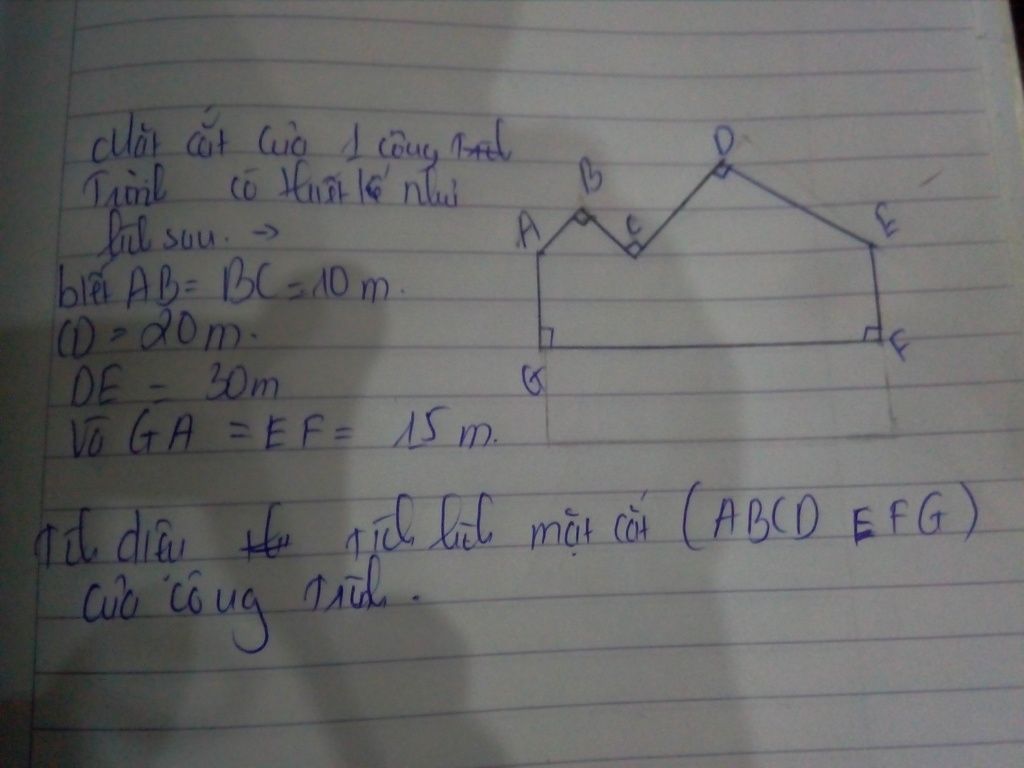 Mặt cắt của 1 công
Trình có thiết kế như
hình sau. →
biết AB = BC = 10 m.
CD = 20 m.
DE = 30m
Và GA = EF = 15 m.
Tính diện tích hình mặt cắt (ABCD EFG)
của công trình.
A
B
C
D
E
F
G